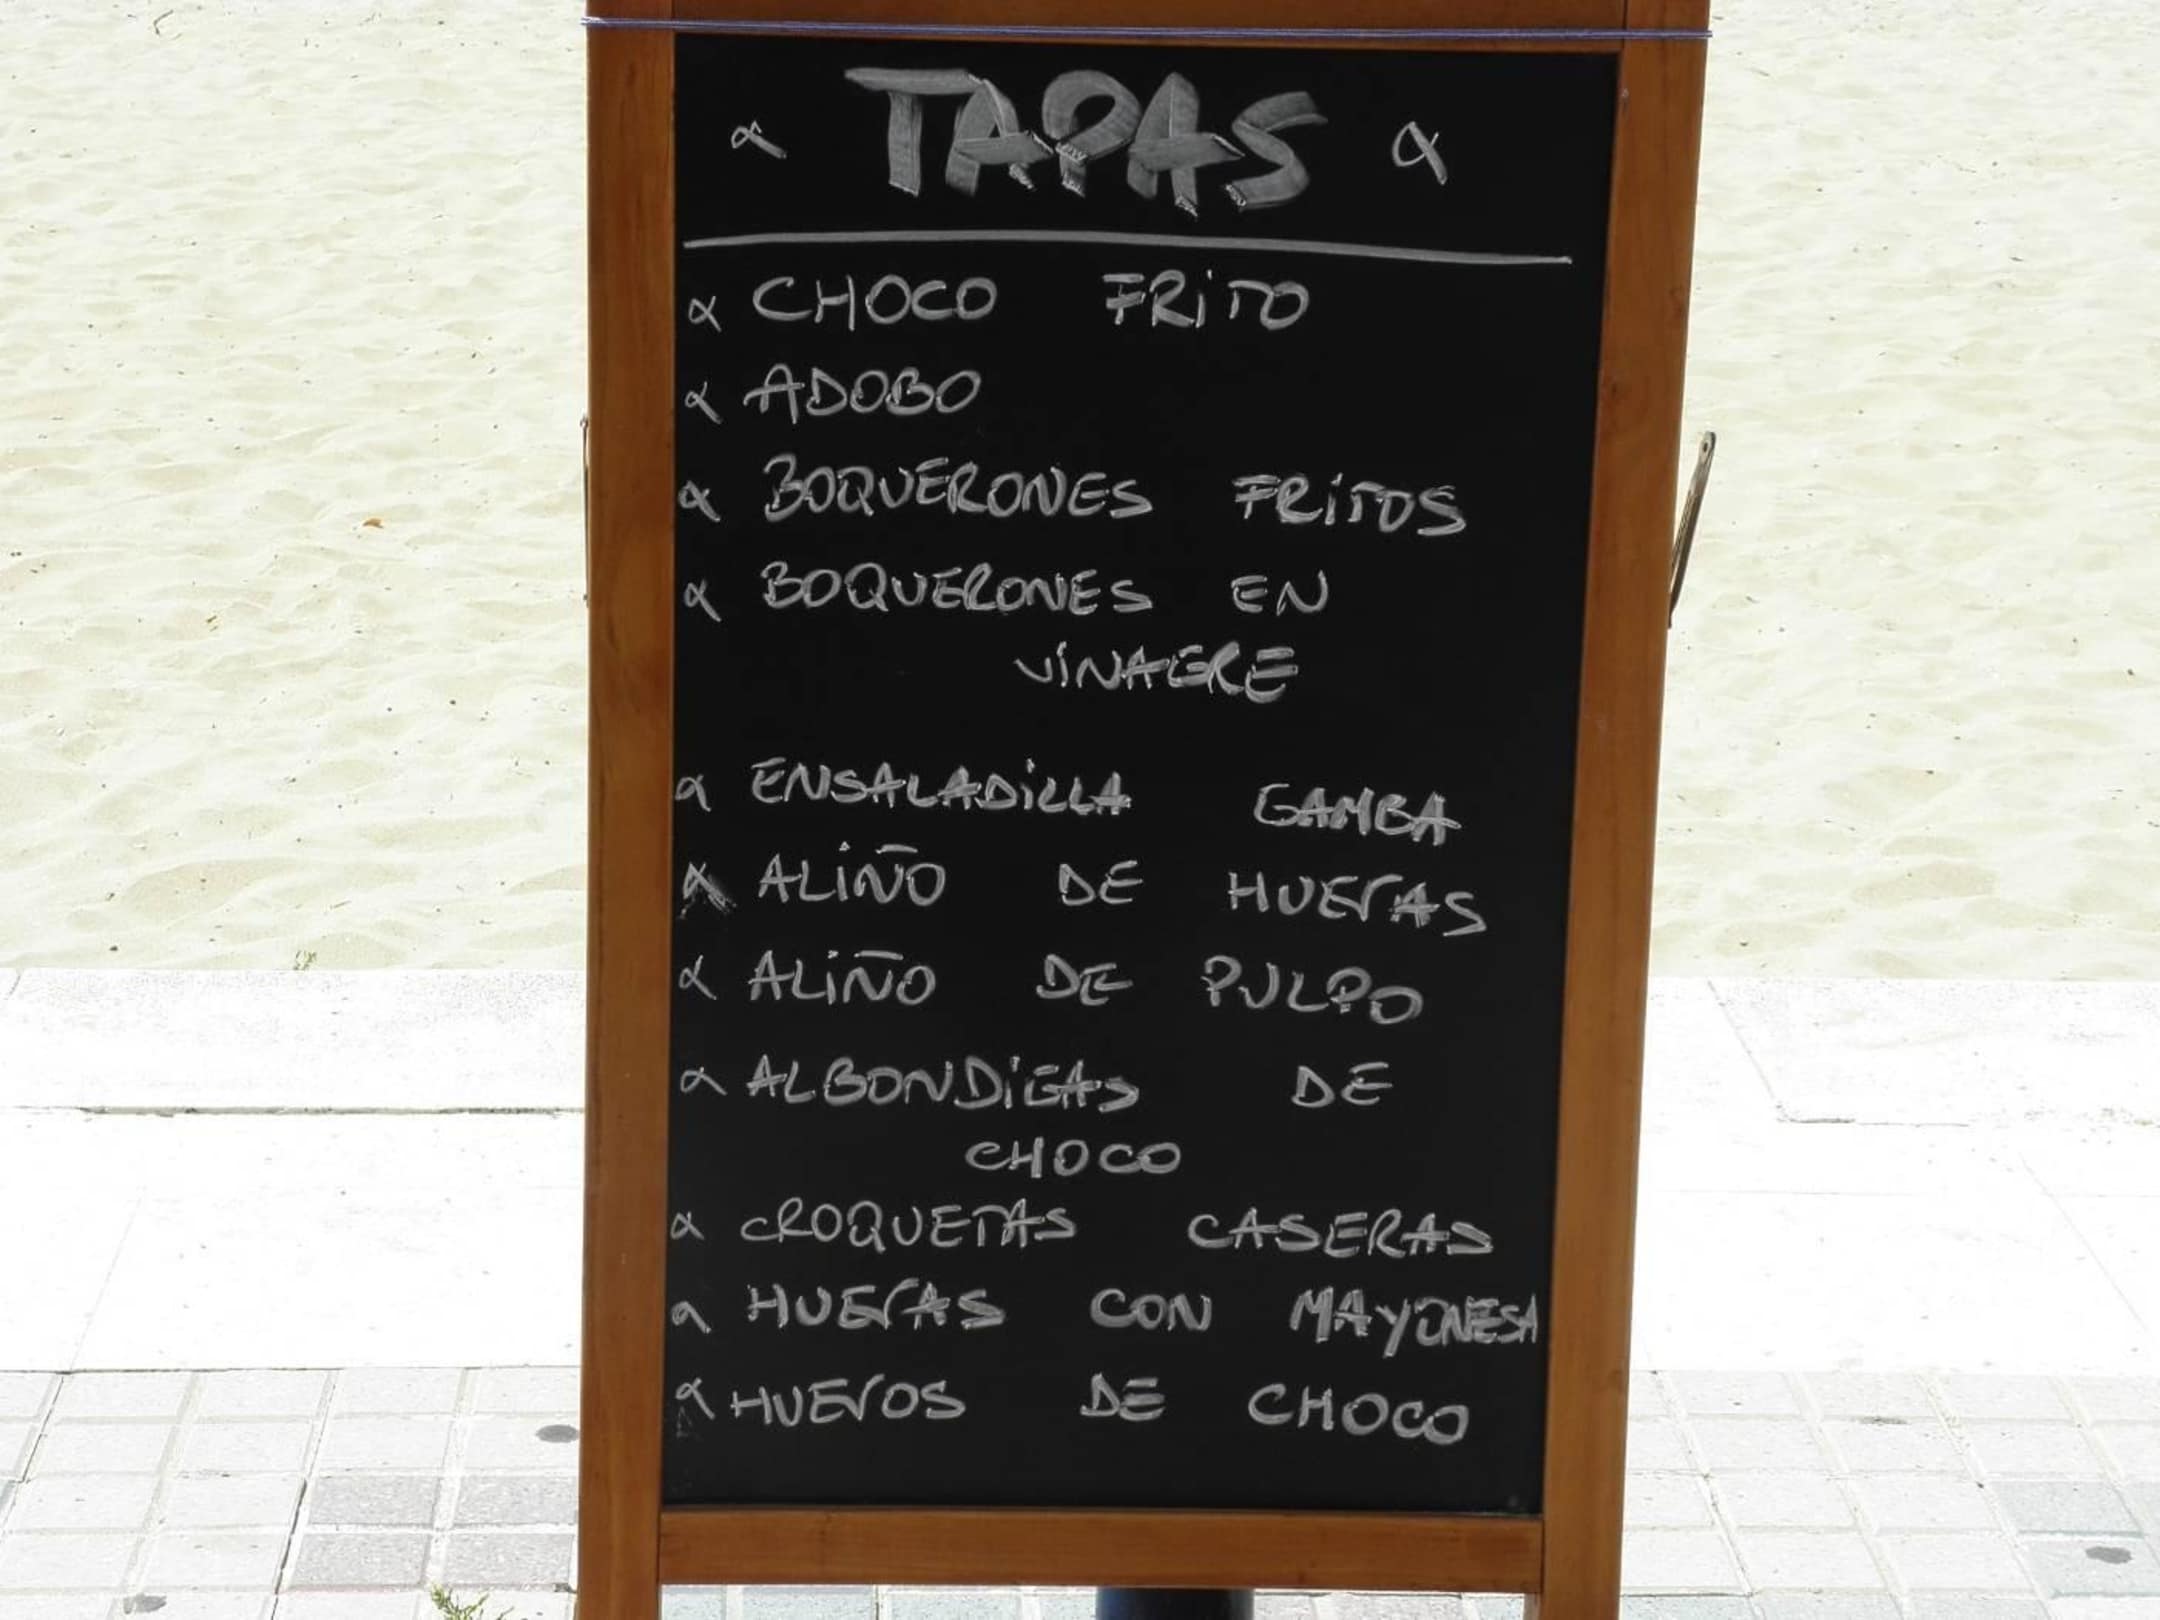 TAPAS
CHOCO FRiTO
ADOBO
BOQUERONES FRiTOS
BOQUERONES EN
ViNAGRE
ENSALADiLLA GAMBA
ALiÑO DE HUEVAS
ALiÑO DE PULPO
ALBONDiGAS DE
CHOCO
CROQUETAS CASERAS
HUEVAS CON MAYONESA
HUEVOS DE CHOCO